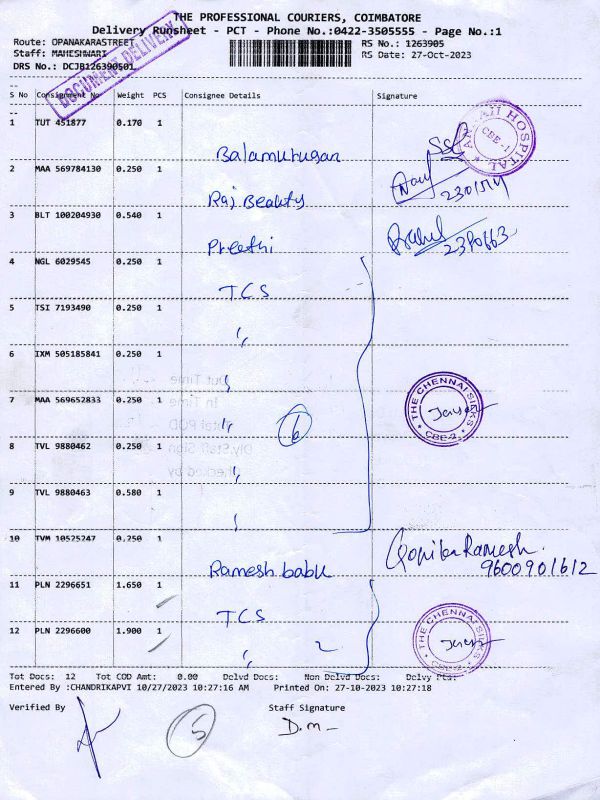 THE PROFESSIONAL COURIERS, COIMBATORE
Delivery Runsheet - PCT - Phone No.:0422-3505555 - Page No.:1
Route: OPANAKARASTREET RS No.: 1263905
Staff: MAHESHWARI RS Date: 27-Oct-2023
DRS No.: DCJB126390501
DOCUMENT DELIVERY
S No Consignment No Weight PCS Consignee Details Signature
1 TUT 451877 0.170 1
Balamurugan
HOSPITAL
CBE-1
2 MAA 569784130 0.250 1
Raj Beauty
3 BLT 100204930 0.540 1
Preethi
Rahul
4 NGL 6029545 0.250 1
TCS
5 TSI 7193490 0.250 1
"
6 IXM 505185841 0.250 1
"
7 MAA 569652833 0.250 1
"
6
THE CHENNAI SILKS
CBE-2
8 TVL 9880462 0.250 1
"
9 TVL 9880463 0.580 1
"
10 TVM 10525247 0.250 1
Ramesh babu
Ramesh.
9600901612
11 PLN 2296651 1.650 1
TCS
12 PLN 2296600 1.900 1
" 2
THE CHENNAI SILKS
CBE-2
Tot Docs: 12 Tot COD Amt: 0.00 Delvd Docs: Non Delvd Docs: Delvy Pts:
Entered By :CHANDRIKAPVI 10/27/2023 10:27:16 AM Printed On: 27-10-2023 10:27:18
Verified By Staff Signature
5
D.m-